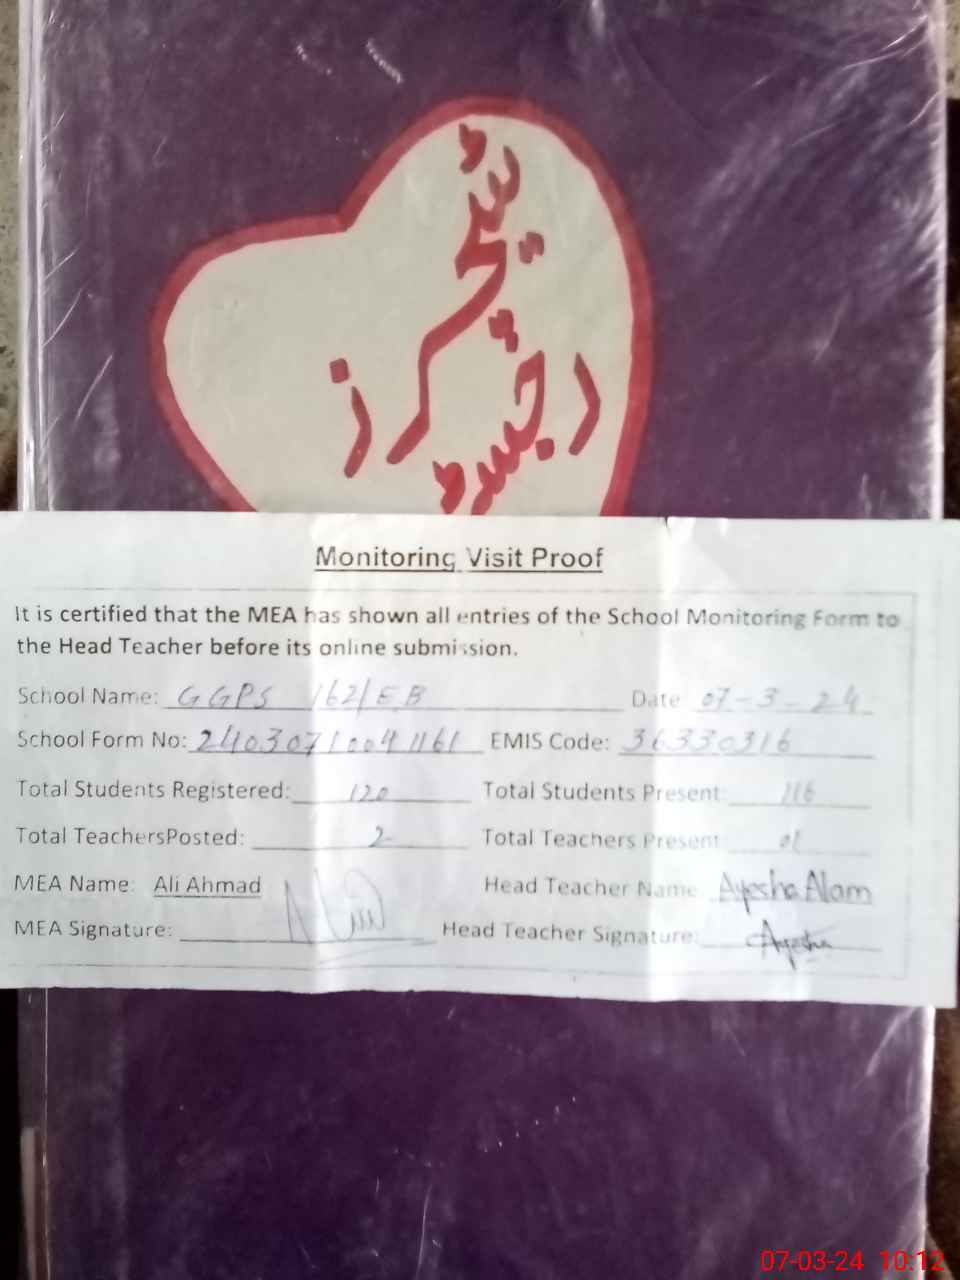 ٹیچرز
رجسٹر
Monitoring Visit Proof
It is certified that the MEA has shown all entries of the School Monitoring Form to
the Head Teacher before its online submission.
School Name: GGPS 162/E.B Date 07-3-24
School Form No: 24030710041161 EMIS Code: 36330316
Total Students Registered: 120 Total Students Present: 116
Total TeachersPosted: 2 Total Teachers Present
MEA Name: Ali Ahmad Head Teacher Name Ayesha Alam
MEA Signature: Head Teacher Signature: Ayesha
07-03-24 10:12